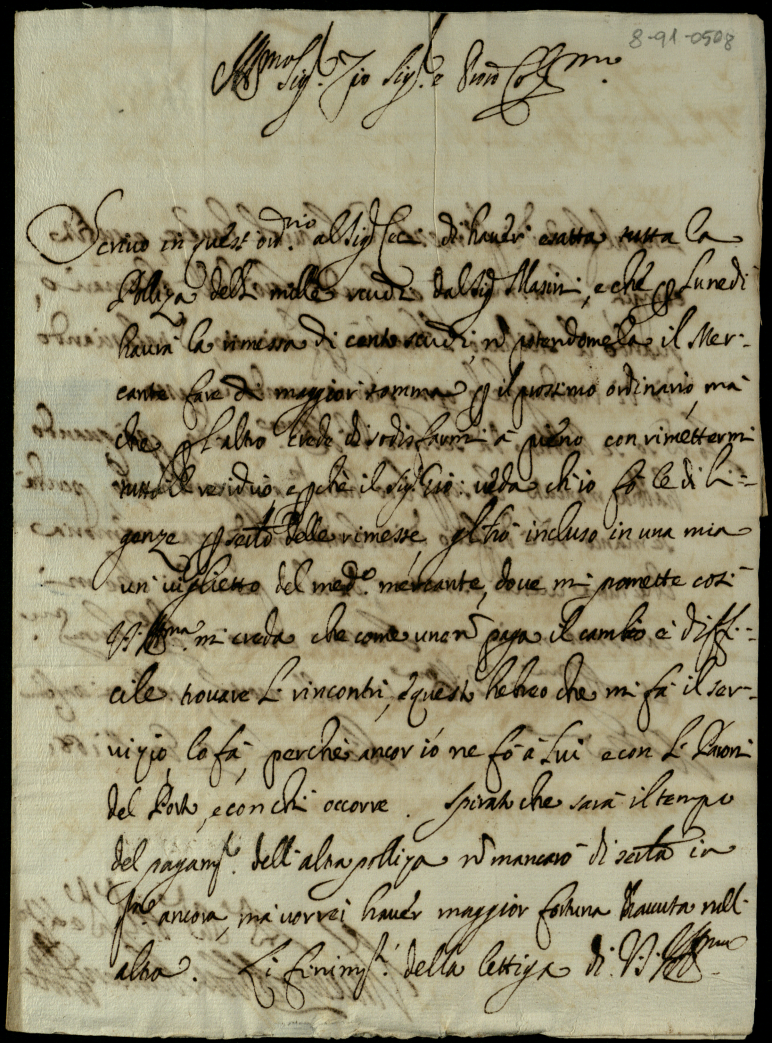 8-91-0508
Ill.mo Sig.r Zio Sig.r e Pron Col.mo
Scrivo in quest'ord.rio al Sig.r di haver esatta tutta la
Polliza delli mille scudi dal Sig.r Masini, e che p Lunedi
havrà la rimessa di cento scudi, nō potendomela il Mer-
cante fare di maggior somma p il prossimo ordinario, mà
che p l'altro crede di sodisfarmi à pieno con rimettermi
tutto il residuo, e pche il Sig.r Gio: veda ch'io fò le dili-
genze p delle rimesse, gl'hò incluso in una mia
un viglietto del med.o mercante, dove mi promette così
V.S. Ill.ma mi creda che come uno nō paga il cambio è diffi-
cile trovare li rincontri, e quest'hebreo che mi fà il ser-
vizio, lo fà, perche ancor io ne fò à lui e con li Pavoni
del Porto, e con chi occorre. Spirato che sarà il tempo
del pagam.to dell'altra polliza nō mancarò di in
ancora, mà vorrei haver maggior fortuna havuta nell'
altra. Li finim.ti della lettiga di V.S. Ill.ma